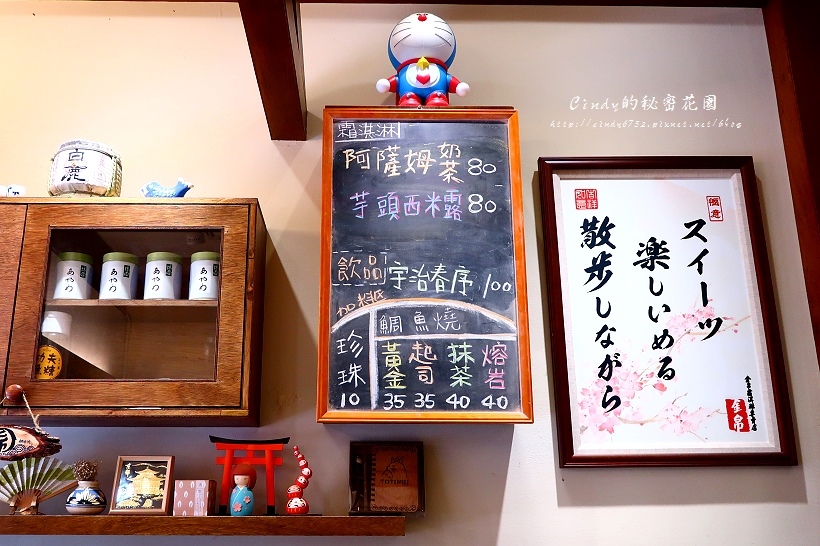 Cindy的秘密花園
http://cindy6732.pixnet.net/blog
霜淇淋
阿薩姆奶茶 80
芋頭西米露 80
飲品
宇治春序 100
加料區
珍珠 10
鯛魚燒
黃金 35
起司 35
抹茶 40
熔岩 40
スイーツ
楽しいめる
散歩しながら
白鹿
あやの
あやの
あやの
あやの